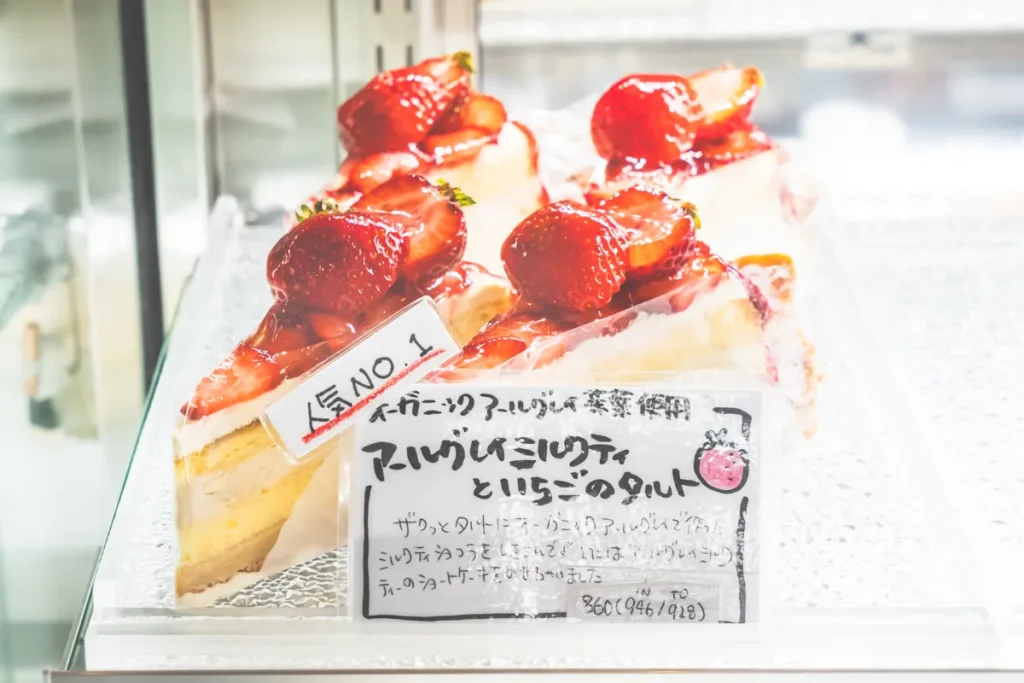 人気NO.1
オーガニックアールグレイ茶葉使用
アールグレイミルクティ
といちごのタルト
ザクっとタルトにオーガニックアールグレイで作った
ミルクティショコラをしきこんで上にはアールグレイミルク
ティーのショートケーキをのせちゃいました
IN TO
860(946/928)